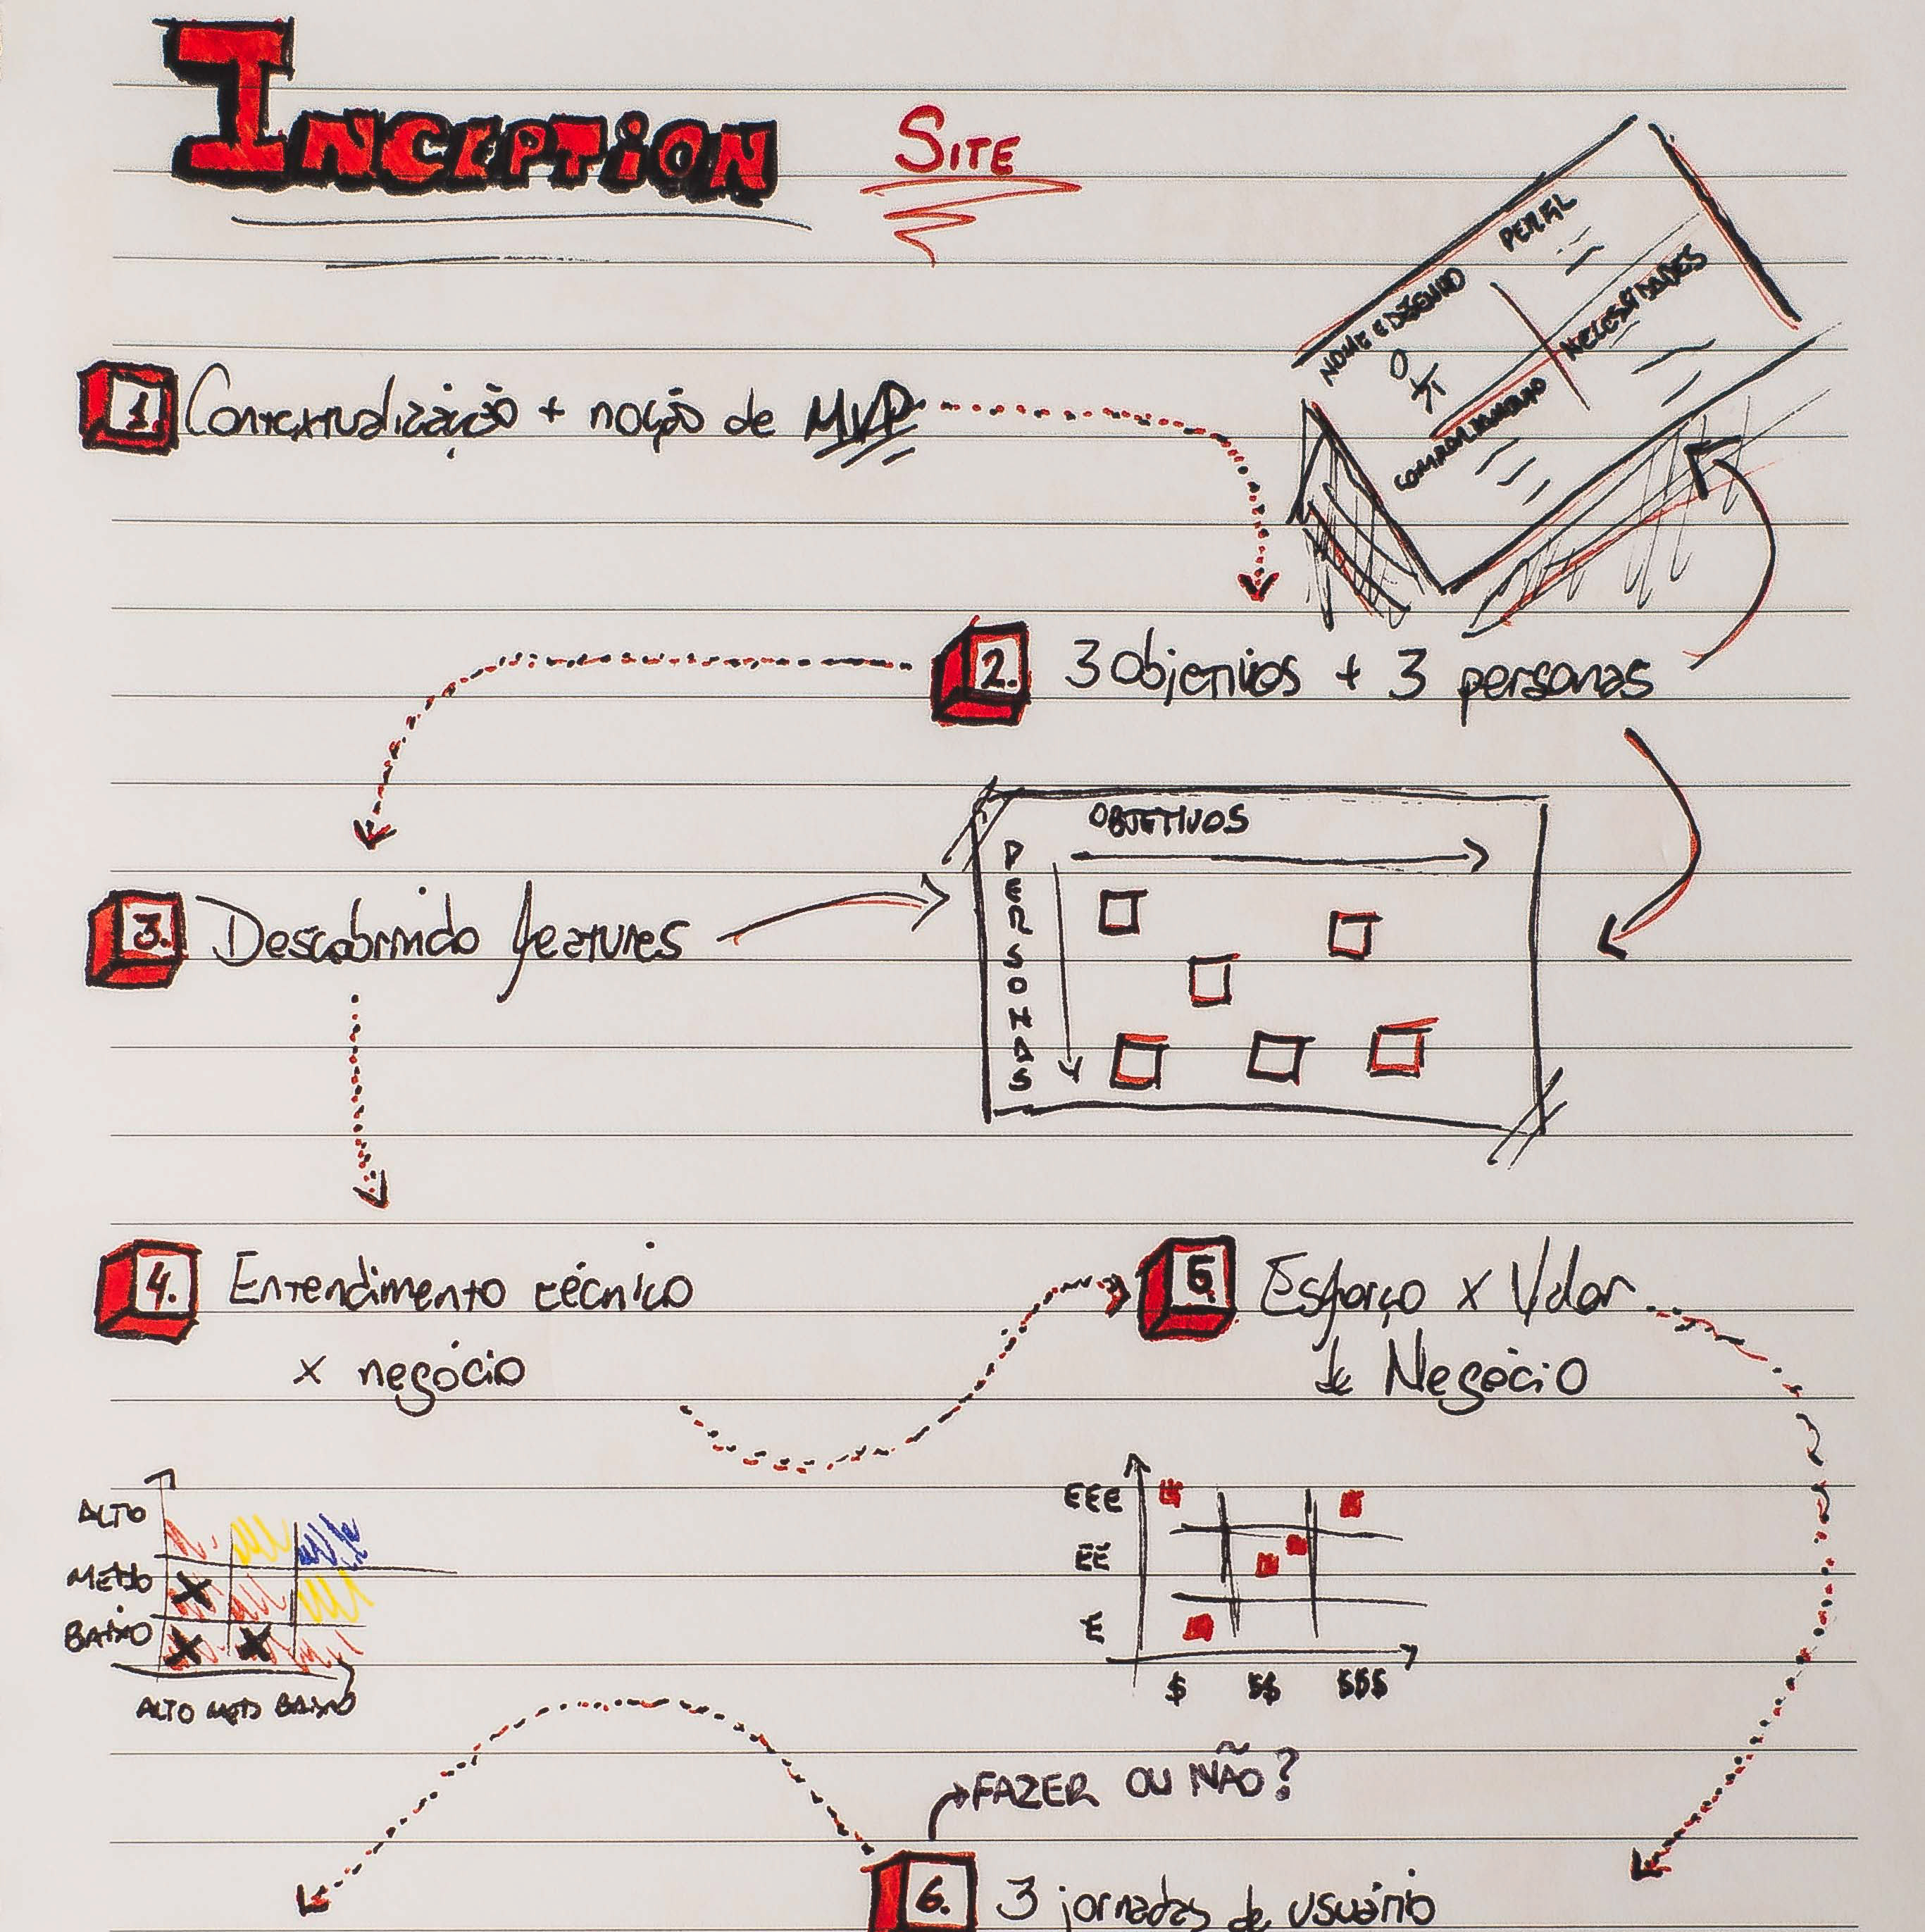 INCEPTION SITE
NOME E DESENHO
PERFIL
COMPORTAMENTO
NECESSIDADES
1. Contextualização + noção de MVP
2. 3 Objetivos + 3 personas
OBJETIVOS
PERSONAS
3. Descobrindo features
4. Entendimento técnico
x negócio
5 Esforço x Valor
de Negócio
ALTO
MEDIO
BAIXO
ALTO MEDIO BAIXO
EEE
EE
E
$ $$ $$$
FAZER OU NÃO?
6. 3 jornadas de usuário